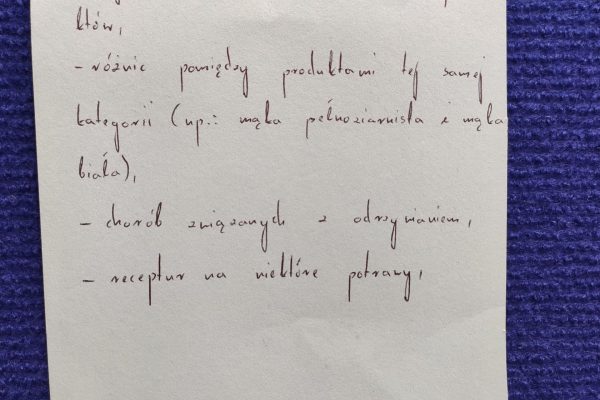 któw,
- różnic pomiędzy produktami tej samej
kategorii (np.: mąka pełnoziarnista i mąka
biała),
- chorób związanych z odrzywianiem,
- receptur na niektóre potrawy,